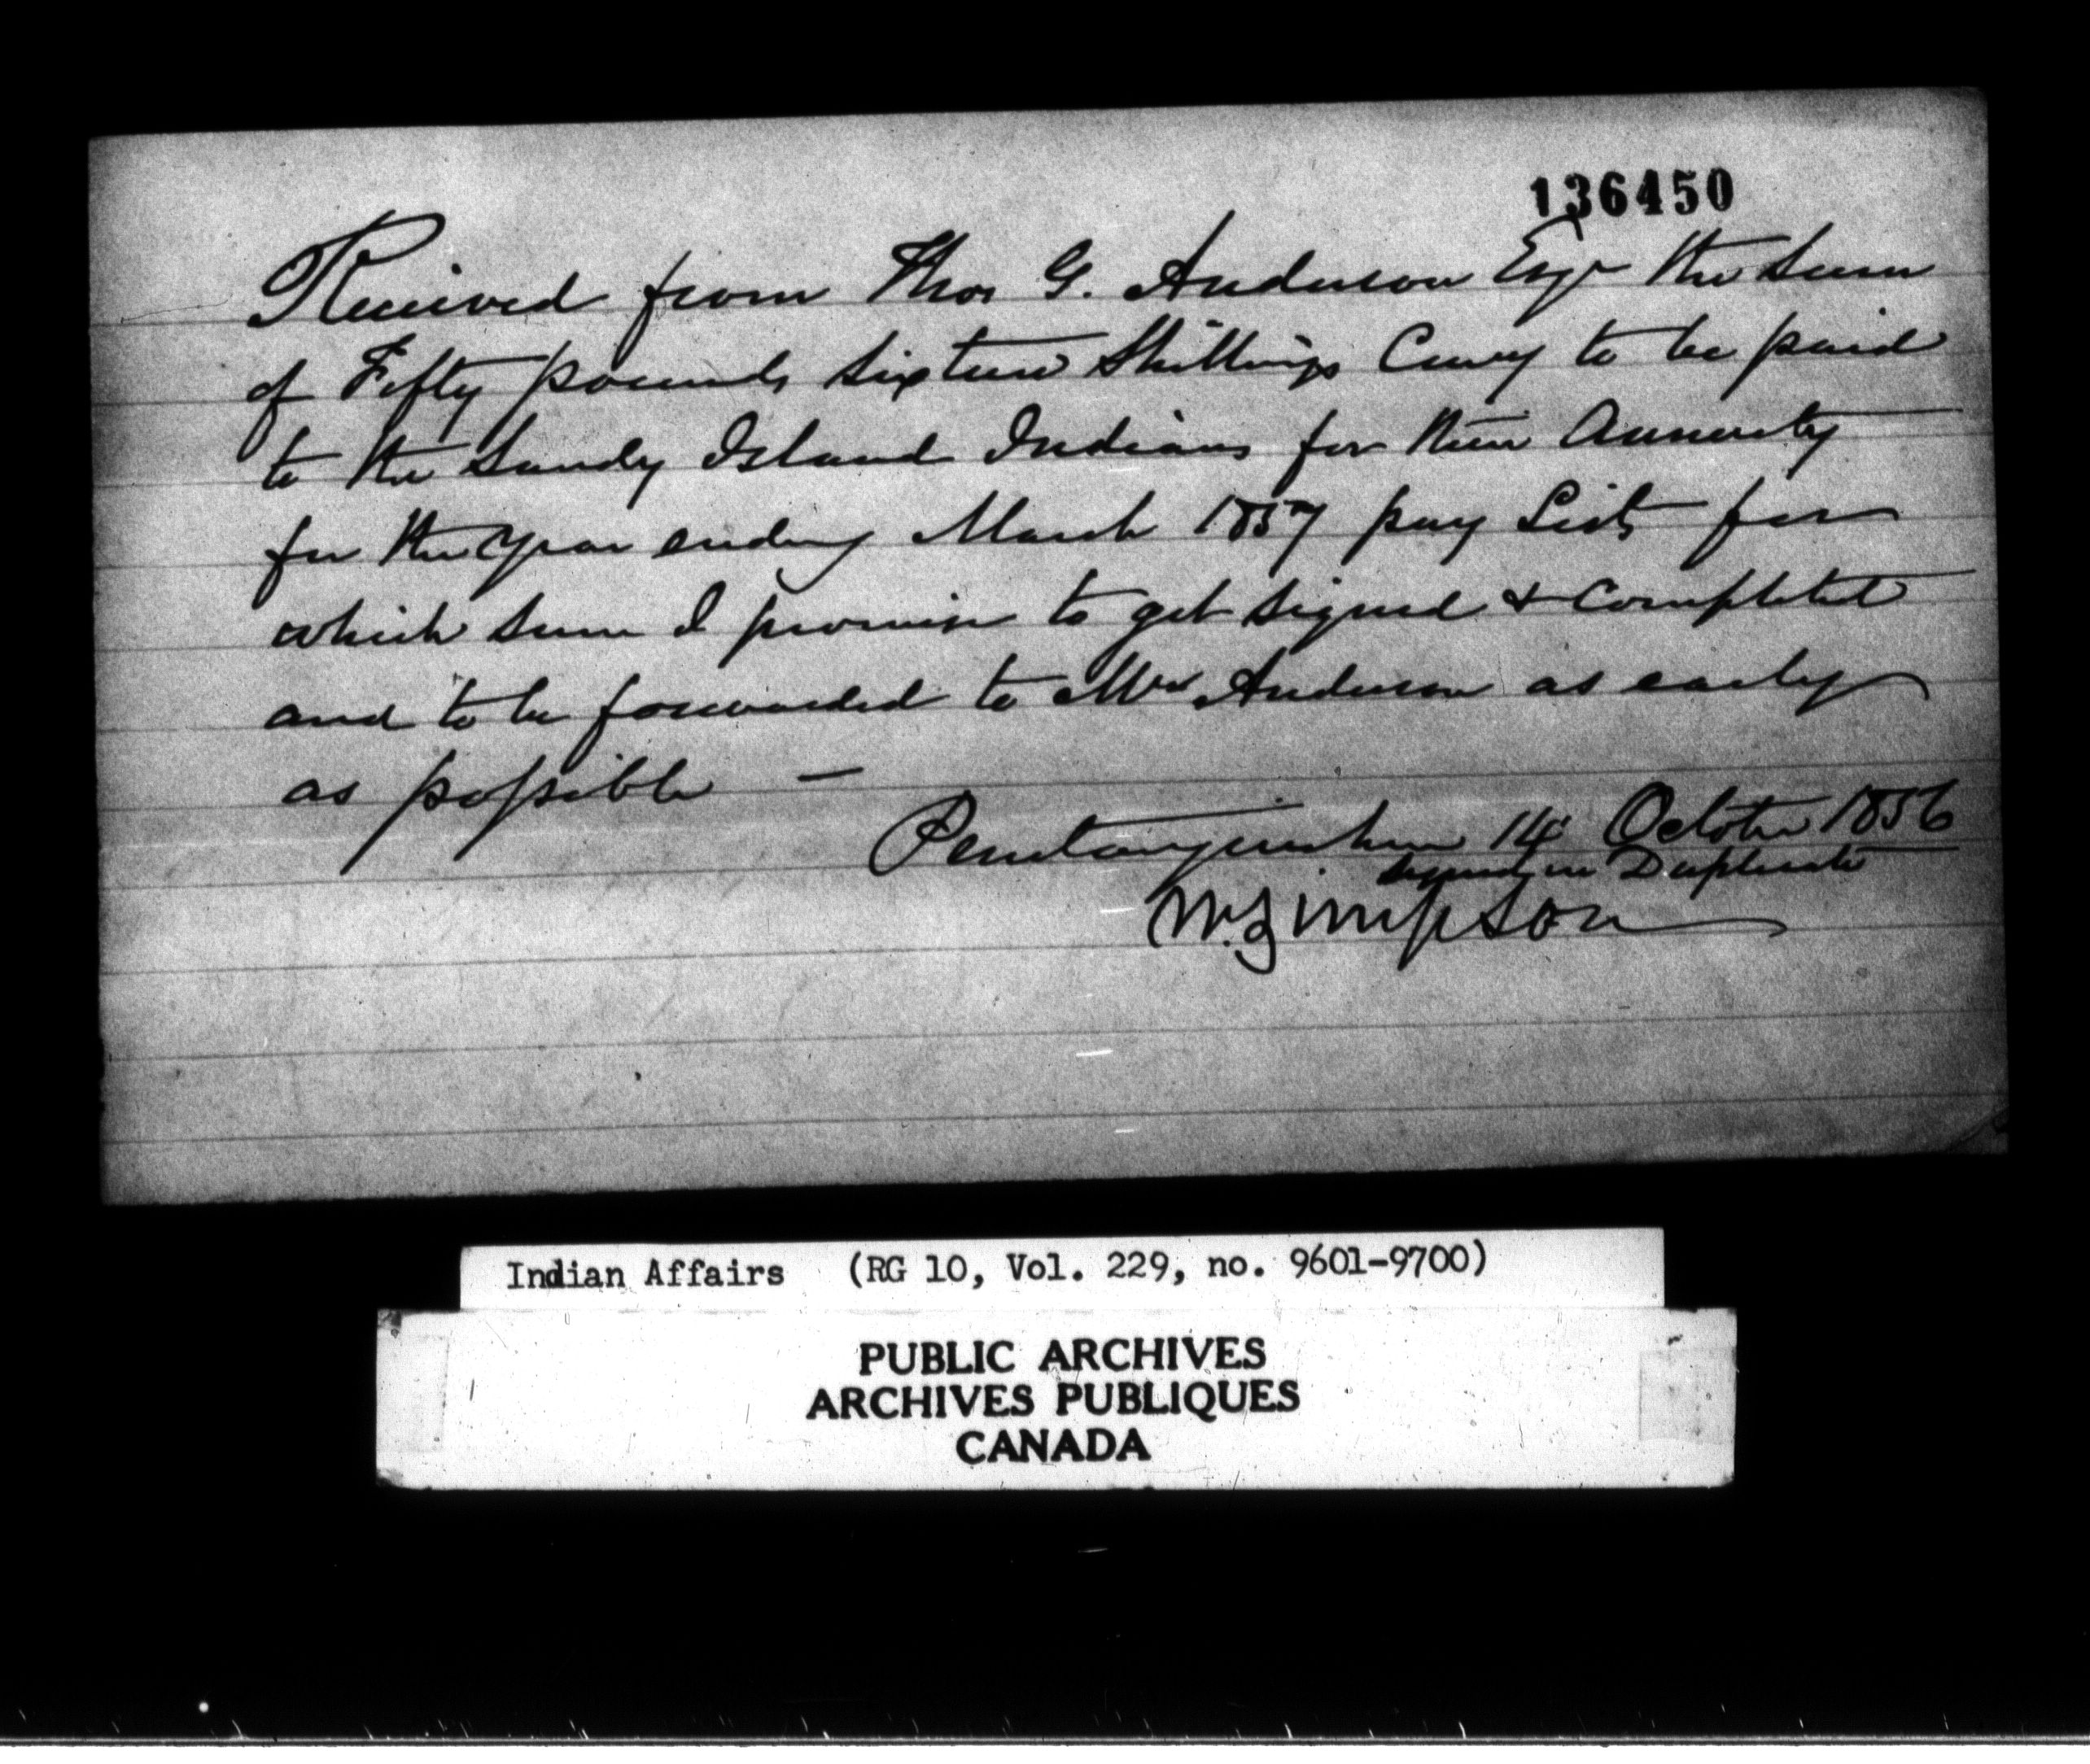 136450
Received from Thos G. Anderson Esqr the Sum
of Fifty pounds sixteen Shillings Curcy to be paid
to the Sandy Island Indians for their Annuity
for the year ending March 1857 pay Lists for
which sum I promise to get signed & Completed
and to be forwarded to Mr Anderson as early
as possible —
Penetanguishene 14 October 1856
signed in Duplicate
W. Simpson
Indian Affairs (RG 10, Vol. 229, no. 9601-9700)
PUBLIC ARCHIVES
ARCHIVES PUBLIQUES
CANADA